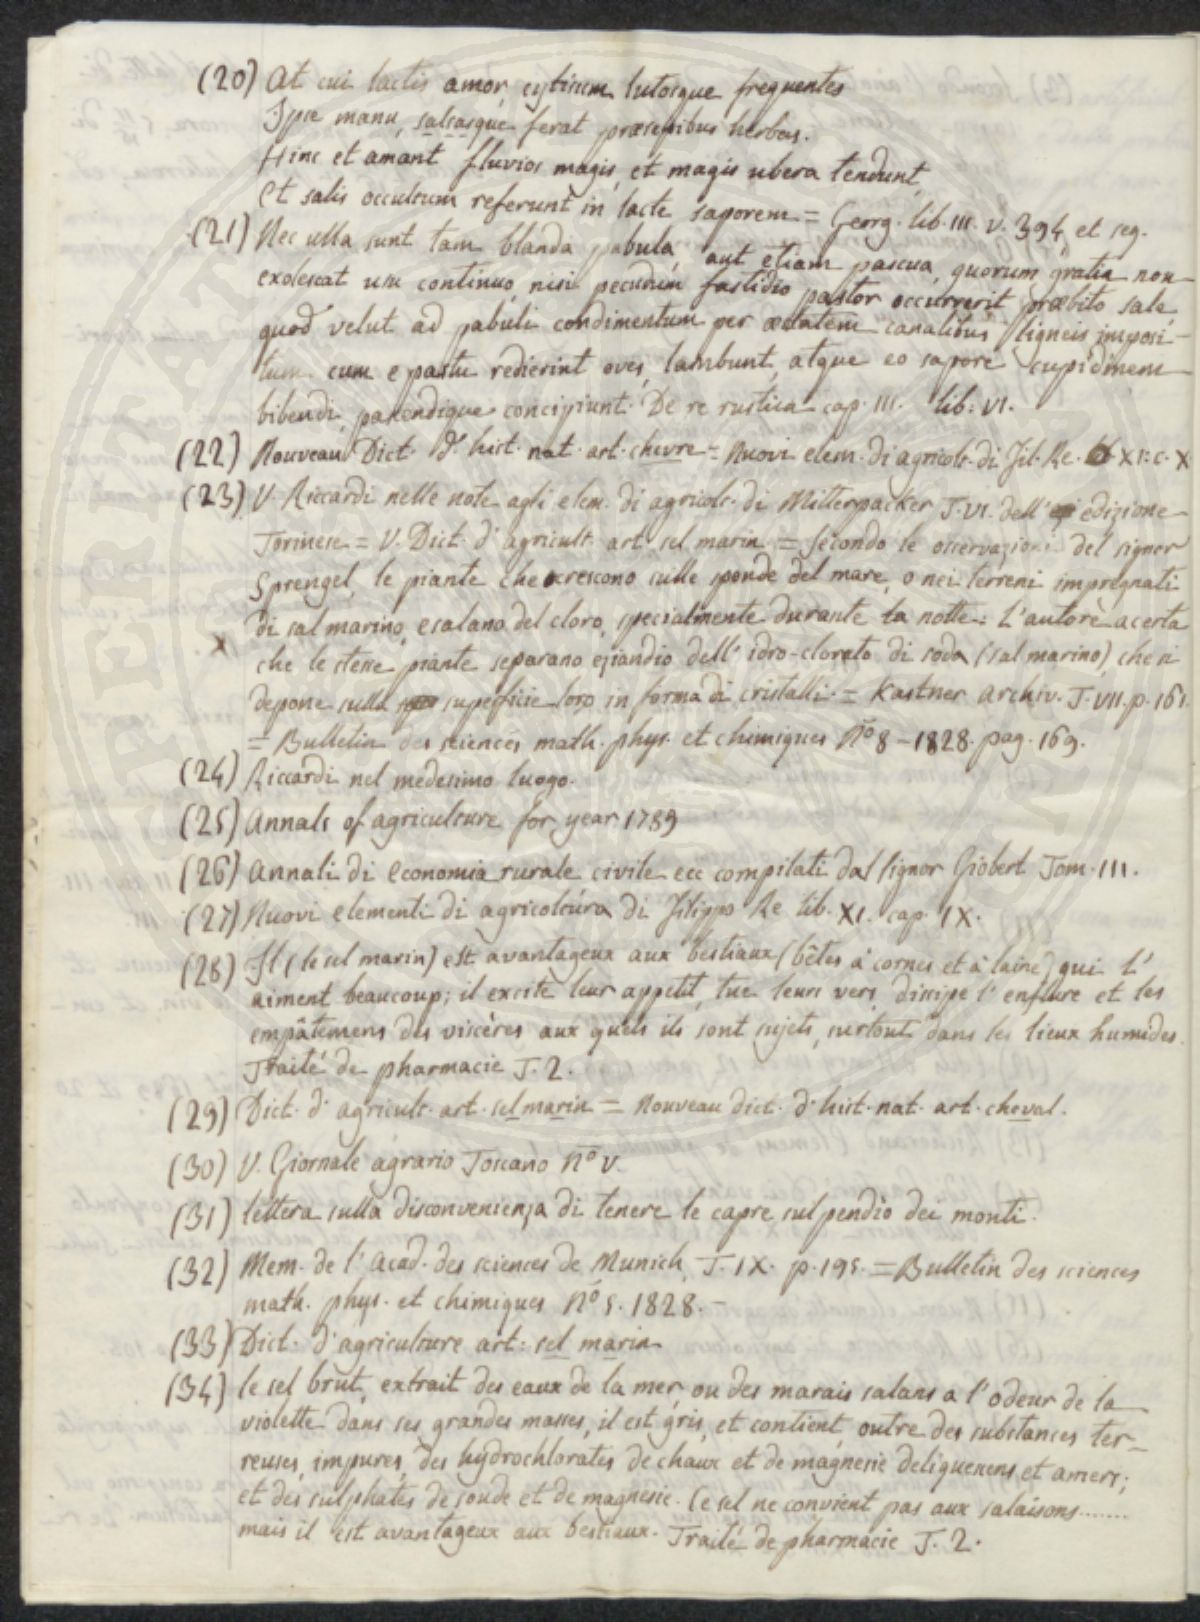 (20) At cui lactis amor, cytisum lutosque frequentes
Ipse manu, salsasque ferat præsepibus herbas.
Hinc et amant fluvios magis, et magis ubera tendunt,
Et salis occultum referunt in lacte saporem = Georg. lib. III. v. 394, et seg.
(21) Nec ulla sunt tam blanda pabula, aut etiam pascua, quorum gratia non
exolescat usu continuo, nisi pecudum fastidio pastor occurrerit præbito sale
quod velut ad pabuli condimentum per æstatem canalibus ligneis imposi-
tum cum e pastu redierint oves, lambunt, atque eo sapore cupidinem
bibendi, pascendique concipiunt. De re rustica cap. III. lib. VI.
(22) Nouveau Dict. d'hist. nat. art. chevre = Nuovi elem. di agricolt. di Fil. Re. XI. c. X
(23) V. Riccardi nelle note agli elem. di agricolt. di Mitterpacker T. VI. dell' edizione
Torinese = V. Dict. d'agricult. art. sel marin = Secondo le osservazioni del signor
Sprengel, le piante che crescono sulle sponde del mare, o nei terreni impregnati
di sal marino, esalano del cloro, specialmente durante la notte. L'autore acerta
x che le stesse piante separano eziandio dell' idro-clorato di soda (sal marino) che si
depone sulla superficie loro in forma di cristalli. = Kastner Archiv. T. VII. p. 161.
= Bulletin des sciences math. phys. et chimiques Nº 8 - 1828. pag. 169.
(24) Riccardi nel medesimo luogo.
(25) Annals of agriculture for year 1789
(26) Annali di economia rurale civile ecc compilati dal signor Giobert Tom. III.
(27) Nuovi elementi di agricoltura di Filippo Re lib. XI. cap. IX.
(28) Il (le sel marin) est avantageux aux bestiaux (bêtes à cornes et à laine) qui l'
aiment beaucoup; il excite leur appetit, tue leurs vers, dissipe l'enflure et les
empâtemens des viscères aux quels ils sont sujets, surtout dans les lieux humides.
Traité de pharmacie T. 2.
(29) Dict. d'agricult. art. sel marin = Nouveau dict. d'hist. nat. art. cheval.
(30) V. Giornale agrario Toscano Nº V.
(31) lettera sulla disconvenienza di tenere le capre sul pendio dei monti.
(32) Mem. de l'Acad. des sciences de Munich, T. IX. p. 195. = Bulletin des sciences
math. phys. et chimiques Nº 5. 1828. -
(33) Dict. d'agriculture art: sel marin
(34) le sel brut, extrait des eaux de la mer, ou des marais salans a l'odeur de la
violette dans ses grandes masses, il est gris, et contient, outre des substances ter-
reuses, impures, des hydrochlorates de chaux et de magnesie deliquescens, et amers;
et des sulphates de soude et de magnesie. Ce sel ne convient pas aux salaisons.......
mais il est avantageux aux bestiaux. Traité de pharmacie T. 2.